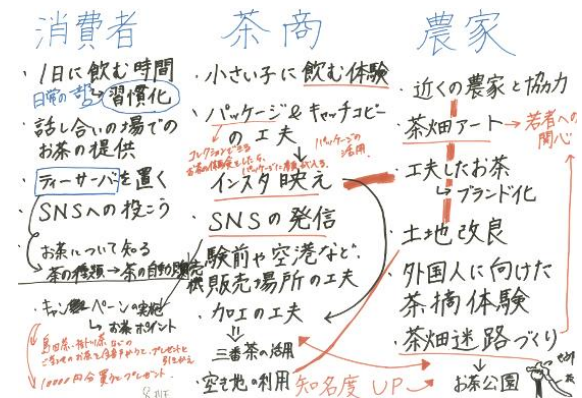 消費者
・1日に飲む時間
日常の
習慣化
・話し合いの場での
お茶の提供
・ティーサーバを置く
・SNSへの投こう
・お茶について知る
茶の種類→茶の自動販売機
・キャンペーンの実施
↳お茶ポイント
茶商
・小さい子に飲む体験
・パッケージ&キャッチコピー
の工夫
コレクションできる
パッケージの
活用
・インスタ映え
・SNSの発信
・駅前や空港など、
販売場所の工夫
・加工の工夫
三番茶の活用
・空き地の利用
知名度UP
農家
・近くの農家と協力
・茶畑アート→若者への
関心
・工夫したお茶
↳ブランド化
・土地改良
・外国人に向けた
茶摘体験
・茶畑迷路づくり
お茶公園